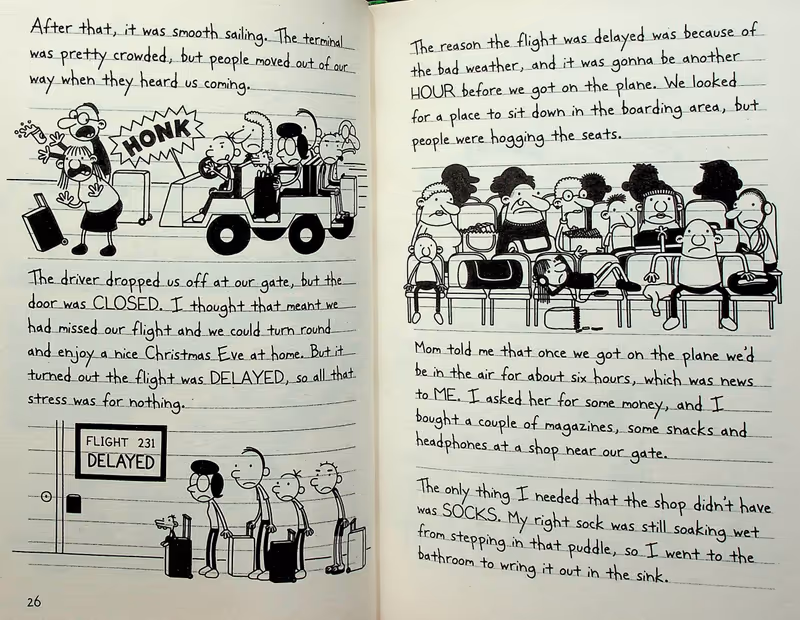 After that, it was smooth sailing. The terminal
was pretty crowded, but people moved out of our
way when they heard us coming.
HONK
The driver dropped us off at our gate, but the
door was CLOSED. I thought that meant we
had missed our flight and we could turn round
and enjoy a nice Christmas Eve at home. But it
turned out the flight was DELAYED, so all that
stress was for nothing.
FLIGHT 231
DELAYED
26
The reason the flight was delayed was because of
the bad weather, and it was gonna be another
HOUR before we got on the plane. We looked
for a place to sit down in the boarding area, but
people were hogging the seats.
Mom told me that once we got on the plane we'd
be in the air for about six hours, which was news
to ME. I asked her for some money, and I
bought a couple of magazines, some snacks and
headphones at a shop near our gate.
The only thing I needed that the shop didn't have
was SOCKS. My right sock was still soaking wet
from stepping in that puddle, so I went to the
bathroom to wring it out in the sink.